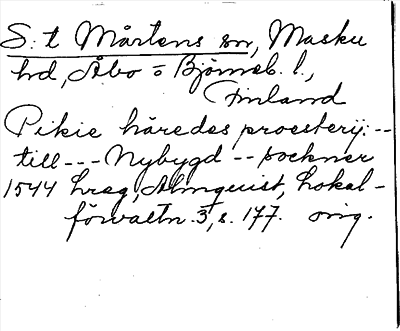 S:t Mårtens sn, Masku
hd, Åbo o Björneb. l.,
Finland
Pikie häredes proesterij: --
till --- Nybygd -- sockner
1544 hreg, Almquist, Lokal-
förvaltn. 3, s. 177. orig.